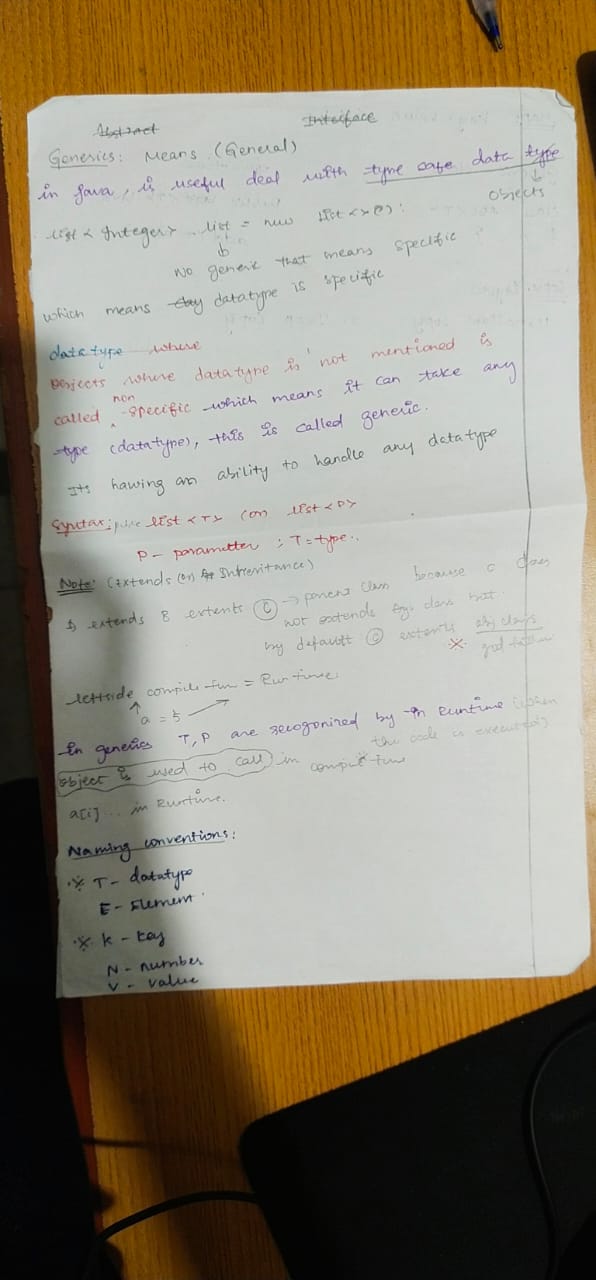 Abstract Interface
Generics: Means (General)
in Java, is useful deal with type safe data type
objects
List < Integer> list = new List <> ():
No generic that means specific
which means datatype is specific
datatype where
Objects where datatype is not mentioned is
called non-specific which means it can take any
type (datatype), this is called generic.
Its hawing an ability to handle any datatype
Syntax: List <T> (or) List <P>
P - parametter ; T = type..
Note: (Extends (or) Inheritance)
extends B extents C → parent class because C does
not extends any class but
by default C extents obj class
god father
leftside compile time = Runtime.
a = 5
In generics T, P are recogonized by in Runtime (when
the code is executed)
object is used to call in compile time
a[i] ... in Runtime.
Naming conventions:
T - datatype
E - Element.
K - Key
N - number
V - value